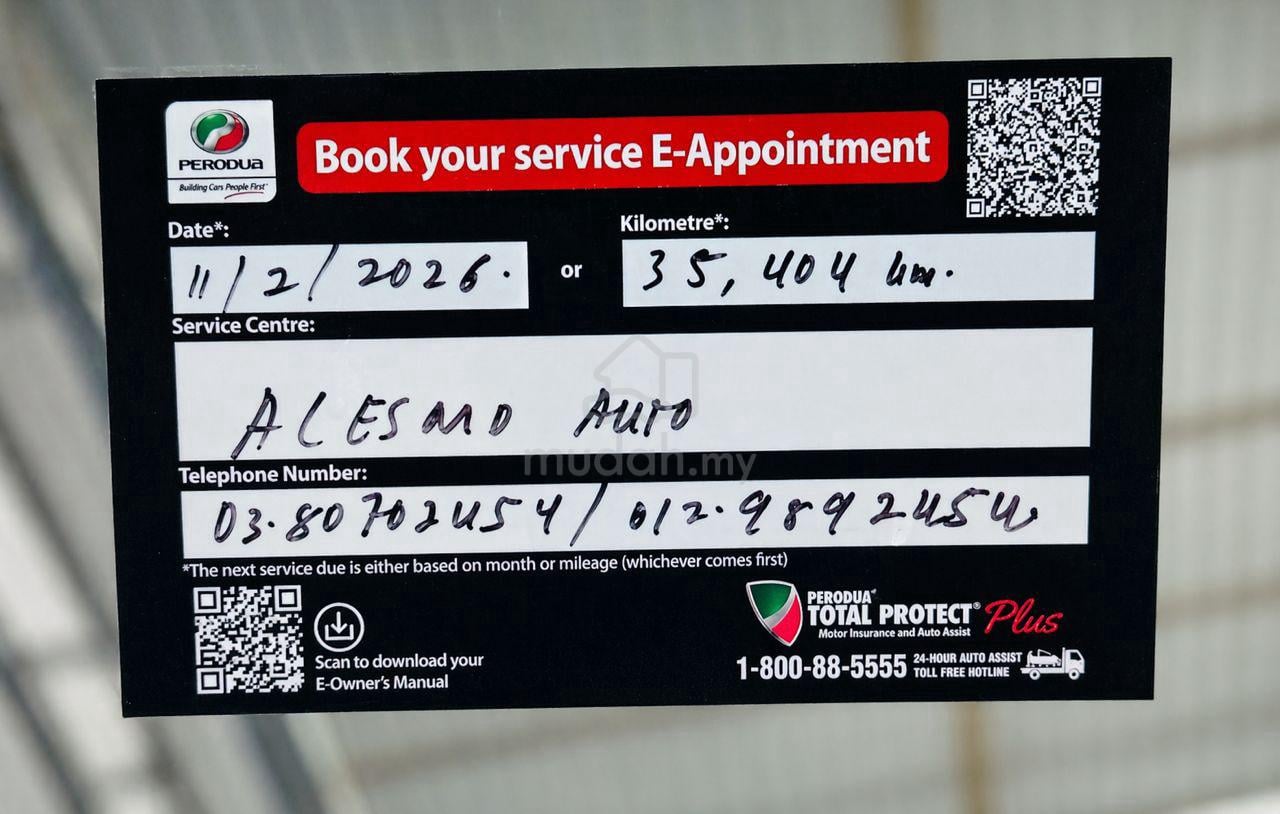 PERODUA
Building Cars People First
Book your service E-Appointment
Date*:
Kilometre*:
11/2/2026.
or
35,404 km.
Service Centre:
ALESMO AUTO
mudah.my
Telephone Number:
03.80702454/012.9892454
*The next service due is either based on month or mileage (whichever comes first)
Scan to download your
E-Owner's Manual
PERODUA
TOTAL PROTECT® Plus
Motor Insurance and Auto Assist
1-800-88-5555
24-HOUR AUTO ASSIST
TOLL FREE HOTLINE